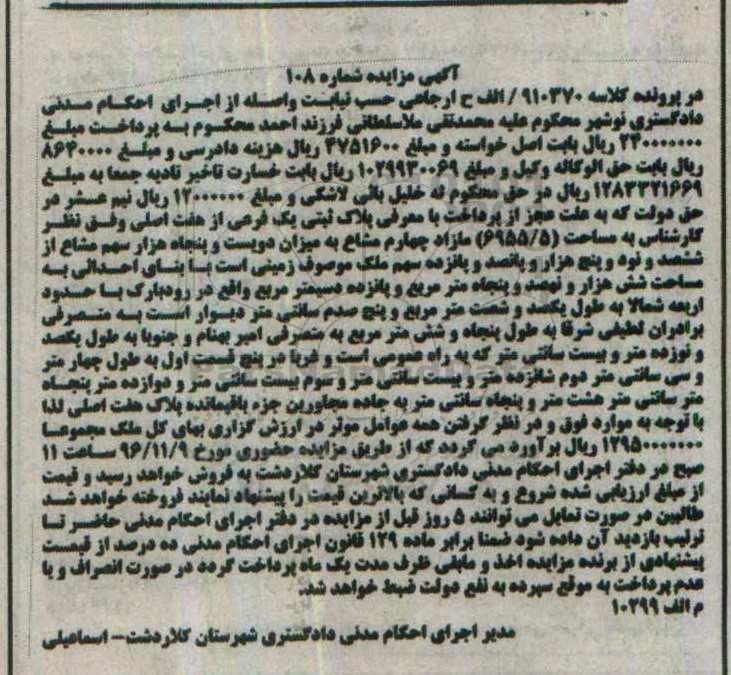 آگهی مزایده شماره ۱۰۸
در پرونده کلاسه ۹۱۰۳۷۰ / الف ح ارجاعی حسب نیابت واصله از اجرای احکام مدنی
دادگستری نوشهر محکوم علیه محمدتقی ملاسلطانی فرزند احمد محکوم به پرداخت مبلغ
۲۳۰۰۰۰۰۰۰ ریال بابت اصل خواسته و مبلغ ۴۷۵۱۶۰۰ ریال هزینه دادرسی و مبلغ ۸۶۴۰۰۰۰
ریال بابت حق الوکاله وکیل و مبلغ ۱۰۲۹۹۳۰۰۶۹ ریال بابت خسارت تاخیر تادیه جمعا به مبلغ
۱۲۸۳۳۲۱۶۶۹ ریال در حق محکوم له خلیل بائی لاشکی و مبلغ ۱۲۰۰۰۰۰۰ ریال نیم عشر در
حق دولت که به علت عجز از پرداخت با معرفی پلاک ثبتی یک فرعی از هفت اصلی وفق نظر
کارشناس به مساحت (۶۹۵۵/۵) مازاد چهارم مشاع به میزان دویست و پنجاه هزار سهم مشاع از
ششصد و نود و پنج هزار و پانصد و پانزده سهم ملک موصوف زمینی است با بنای احداثی به
مساحت شش هزار و نهصد و پنجاه متر مربع و پانزده دسیمتر مربع واقع در رودبارک با حدود
اربعه شمالا به طول یکصد و شصت متر مربع و پنج صدم سانتی متر دیوار است به متصرفی
برادران لطیفی شرقا به طول پنجاه و شش متر مربع به متصرفی امیر بهنام و جنوبا به طول یکصد
و نوزده متر و بیست سانتی متر که به راه عمومی است و غربا در پنج قسمت اول به طول چهار متر
و سی سانتی متر دوم شانزده متر و بیست سانتی متر و سوم بیست سانتی متر و دوازده متر پنجاه
متر سانتی متر هشت متر و پنجاه سانتی متر به جاده مجاورین جزء باقیمانده پلاک هفت اصلی لذا
با توجه به موارد فوق و در نظر گرفتن همه عوامل موثر در ارزش گزاری بهای کل ملک مجموعا
۱۲۹۵۰۰۰۰۰۰۰ ریال برآورد می گردد که از طریق مزایده حضوری مورخ ۹۶/۱۱/۹ ساعت ۱۱
صبح در دفتر اجرای احکام مدنی دادگستری شهرستان کلاردشت به فروش خواهد رسید و قیمت
از مبلغ ارزیابی شده شروع و به کسانی که بالاترین قیمت را پیشنهاد نمایند فروخته خواهد شد
طالبین در صورت تمایل می توانند ۵ روز قبل از مزایده در دفتر اجرای احکام مدنی حاضر تا
ترتیب بازدید آن داده شود ضمنا برابر ماده ۱۲۹ قانون اجرای احکام مدنی ده درصد از قیمت
پیشنهادی از برنده مزایده اخذ و مابقی ظرف مدت یک ماه پرداخت گردد در صورت انصراف و یا
عدم پرداخت به موقع سپرده به نفع دولت ضبط خواهد شد.
م الف ۱۰۲۹۹
مدیر اجرای احکام مدنی دادگستری شهرستان کلاردشت– اسماعیلی